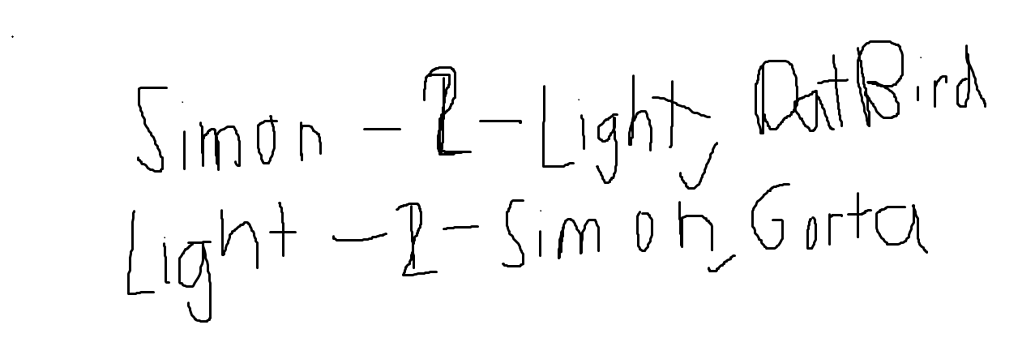 Simon-2-Light, DatBird
Light-2-Simon, Gorta